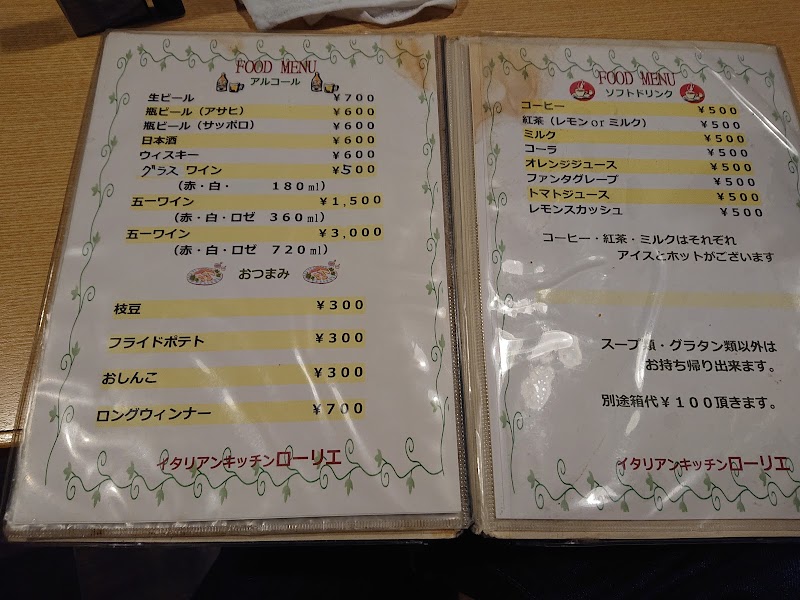 FOOD MENU
アルコール
生ビール ￥７００
瓶ビール（アサヒ） ￥６００
瓶ビール（サッポロ） ￥６００
日本酒 ￥６００
ウィスキー ￥６００
グラス ワイン ￥５００
（赤・白・ １８０㎖）
五一ワイン ￥１,５００
（赤・白・ロゼ ３６０㎖）
五一ワイン ￥３,０００
（赤・白・ロゼ ７２０㎖）
おつまみ
枝豆 ￥３００
フライドポテト ￥３００
おしんこ ￥３００
ロングウィンナー ￥７００
イタリアンキッチンローリエ
FOOD MENU
ソフトドリンク
コーヒー ￥５００
紅茶（レモン or ミルク） ￥５００
ミルク ￥５００
コーラ ￥５００
オレンジジュース ￥５００
ファンタグレープ ￥５００
トマトジュース ￥５００
レモンスカッシュ ￥５００
コーヒー・紅茶・ミルクはそれぞれ
アイスとホットがございます
スープ類・グラタン類以外は
お持ち帰り出来ます。
別途箱代￥１００頂きます。
イタリアンキッチンローリエ